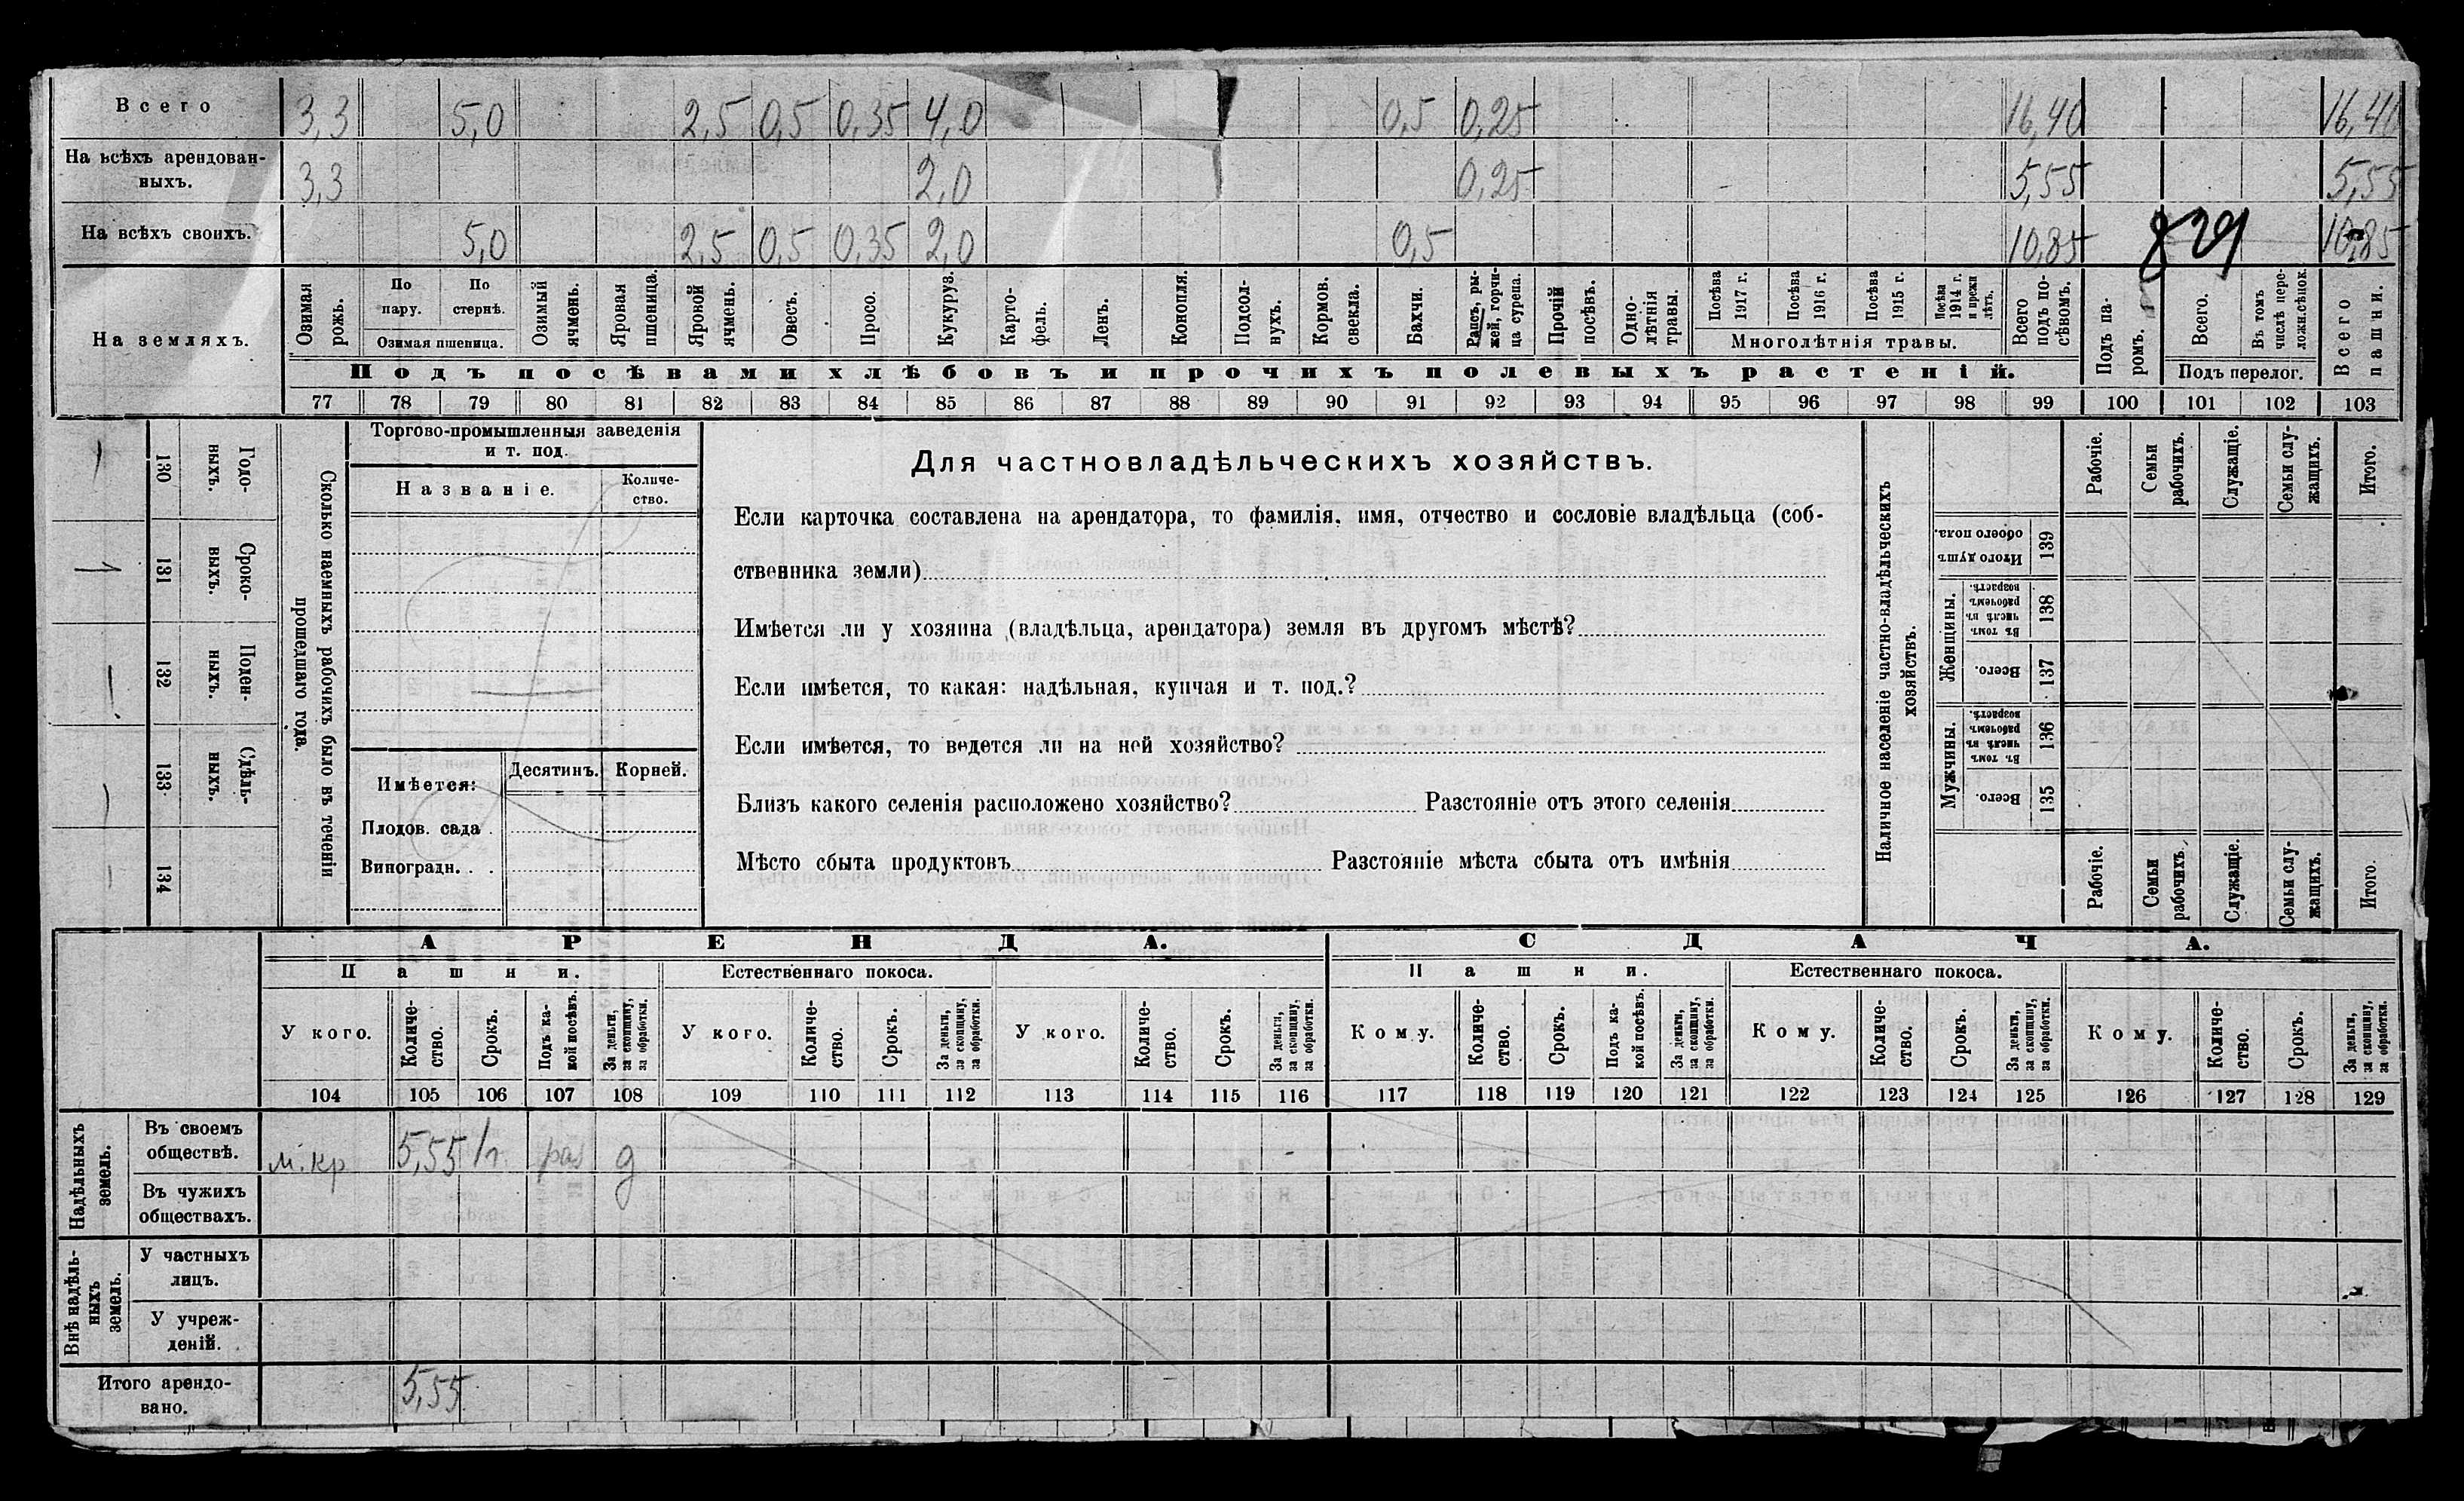 Всего 3,3 5,0 2,5 0,5 0,35 4,0 0,5 0,25 16,40 16,40
На всѣхъ арендован-
ныхъ. 3,3 2,0 0,25 5,55 5,55
На всѣхъ своихъ. 5,0 2,5 0,5 0,35 2,0 0,5 10,85 829 10,85
На земляхъ.
Озимая рожь.
По пару.
По стернѣ.
Озимая пшеница.
Озимый ячмень.
Яровая пшеница.
Яровой ячмень.
Овесъ.
Просо.
Кукуруз.
Карто-
фель.
Ленъ.
Конопля.
Подсол-
нухъ.
Кормов.
свекла.
Бахчи.
Рапсъ, ры-
жей, горчи-
ца сурепа.
Прочій посѣвъ.
Одно-
лѣтнія травы.
Посѣва 1917 г.
Посѣва 1916 г.
Посѣва 1915 г.
Посѣва 1914 г. и прежн лѣтъ.
Многолѣтнія травы.
Всего подъ по-
сѣвомъ.
Подъ па-
ромъ.
Всего.
Въ томъ числѣ пере-
ложн.сѣнок.
Подъ перелог.
Всего пашни.
Подъ посѣвами хлѣбовъ и прочихъ полевыхъ растеній.
77 78 79 80 81 82 83 84 85 86 87 88 89 90 91 92 93 94 95 96 97 98 99 100 101 102 103
Сколько наемныхъ рабочихъ было въ теченіи
прошедшаго года.
Годо-
выхъ. 130
Сроко-
выхъ. 131 1
Поден-
ныхъ. 132
Сдѣль-
ныхъ. 133
134
Торгово-промышленныя заведенія
и т. под.
Названіе.
Количе-
ство.
Имѣется: Десятинъ. Корней.
Плодов. сада .
Виноградн. . .
Для частновладѣльческихъ хозяйствъ.
Если карточка составлена на арендатора, то фамилія, имя, отчество и сословіе владѣльца (соб-
ственника земли)
Имѣется ли у хозяина (владѣльца, арендатора) земля въ другомъ мѣстѣ?
Если имѣется, то какая: надѣльная, купчая и т. под.?
Если имѣется, то ведется ли на ней хозяйство?
Близъ какого селенія расположено хозяйство? Разстояніе отъ этого селенія
Мѣсто сбыта продуктовъ Разстояніе мѣста сбыта отъ имѣнія
Наличное населеніе частно-владѣльческихъ
хозяйствъ.
Рабочіе.
Семьи рабочихъ.
Служащіе.
Семьи слу-
жащихъ.
Итого.
Итого душъ обоего пола. 139
Женщины.
Въ томъ числѣ въ рабочемъ возрастѣ. 138
Всего. 137
Мужчины.
Въ томъ числѣ въ рабочемъ возрастѣ. 136
Всего. 135
Рабочіе.
Семьи рабочихъ.
Служащіе.
Семьи слу-
жащихъ.
Итого.
АРЕНДА. СДАЧА.
Пашни. Естественнаго покоса. Пашни. Естественнаго покоса.
У кого.
Количе-
ство.
Срокъ.
Подъ ка-
кой посѣвъ.
За деньги, за скопщину, за обработки.
У кого.
Количе-
ство.
Срокъ.
За деньги, за скопщину, за обработки.
У кого.
Количе-
ство.
Срокъ.
За деньги, за скопщину, за обработки.
Кому.
Количе-
ство.
Срокъ.
Подъ ка-
кой посѣвъ.
За деньги, за скопщину, за обработки.
Кому.
Количе-
ство.
Срокъ.
За деньги, за скопщину, за обработки.
Кому.
Количе-
ство.
Срокъ.
За деньги, за скопщину, за обработки.
104 105 106 107 108 109 110 111 112 113 114 115 116 117 118 119 120 121 122 123 124 125 126 127 128 129
Надѣльныхъ земель.
Въ своемъ
обществѣ. м. кр 5,55 1г раз д
Въ чужихъ
обществахъ.
Внѣ надѣль-
ныхъ земель.
У частныхъ
лицъ.
У учреж-
деній.
Итого арендо-
вано. 5,55